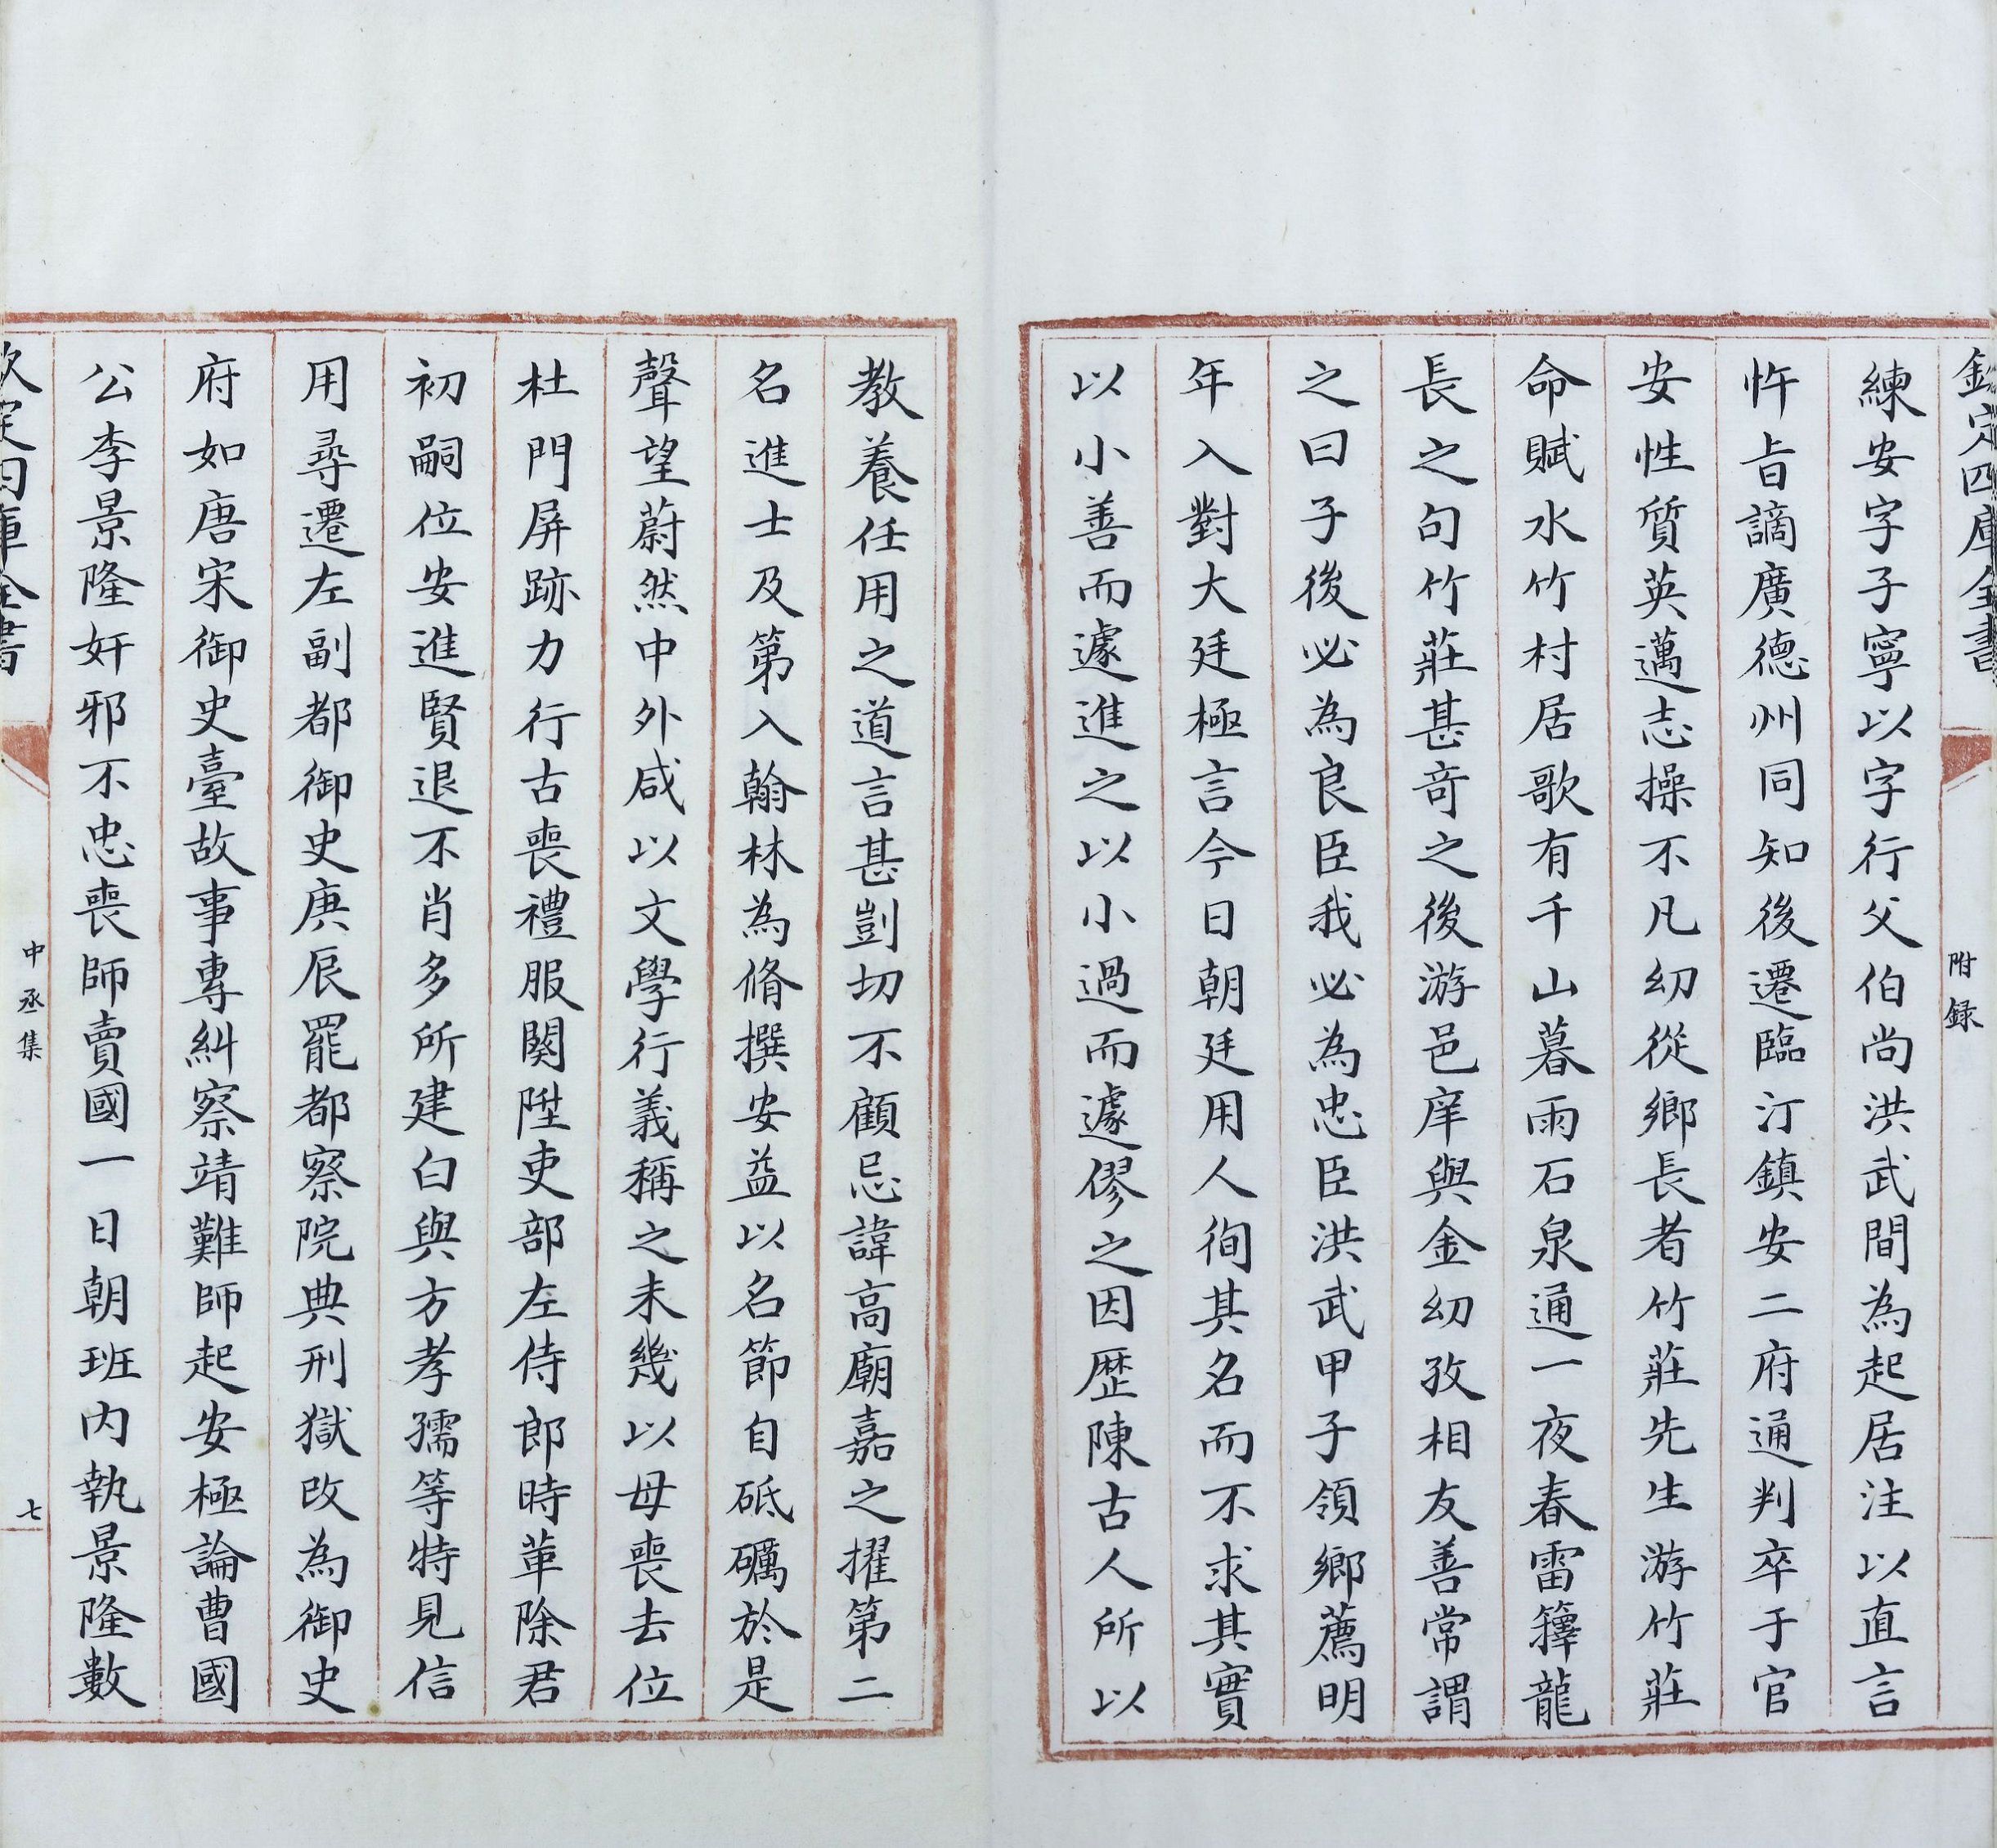 欽定四庫全書
附録
練安字子寧以字行父伯尚洪武間為起居注以直言
忤㫖謫廣德州同知後遷臨汀鎮安二府通判卒于官
安性質英邁志操不凡幼從鄉長者竹莊先生游竹莊
命賦水竹村居歌有千山暮雨石泉通一夜春雷籜龍
長之句竹莊甚奇之後游邑庠與金幼孜相友善常謂
之曰子後必為良臣我必為忠臣洪武甲子領鄉薦明
年入對大廷極言今日朝廷用人徇其名而不求其實
以小善而遽進之以小過而遽僇之因歴陳古人所以
教養任用之道言甚剴切不顧忌諱高廟嘉之擢第二
名進士及第入翰林為脩撰安益以名節自砥礪於是
聲望蔚然中外咸以文學行義稱之未幾以母喪去位
杜門屏跡力行古喪禮服闋陞吏部左侍郎時革除君
初嗣位安進賢退不肖多所建白與方孝孺等特見信
用尋遷左副都御史庚辰罷都察院典刑獄改為御史
府如唐宋御史臺故事專糾察靖難師起安極論曹國
公李景隆奸邪不忠喪師賣國一日朝班内執景隆數
欽定四庫全書
中丞集
七